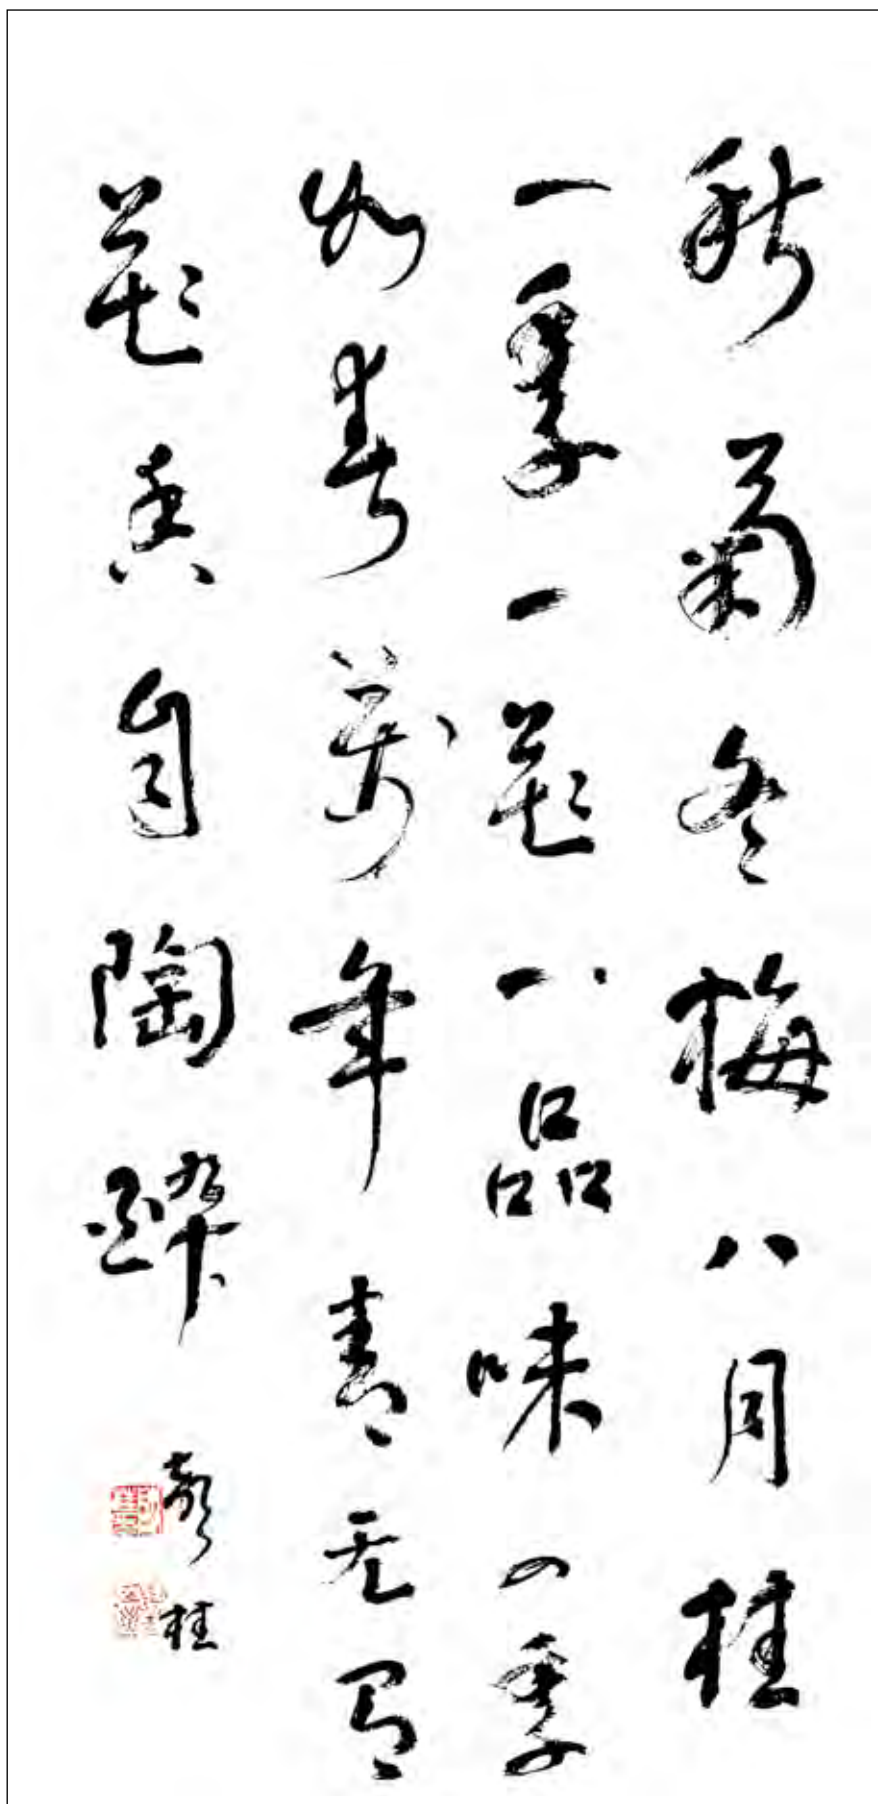 秋菊冬梅八月桂
一季一花一品味四季
如春萬年青无
花香自陶醉
桂